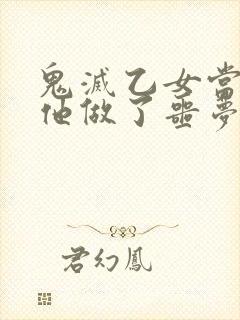 鬼滅乙女當
他做了噩夢
君幻鳳